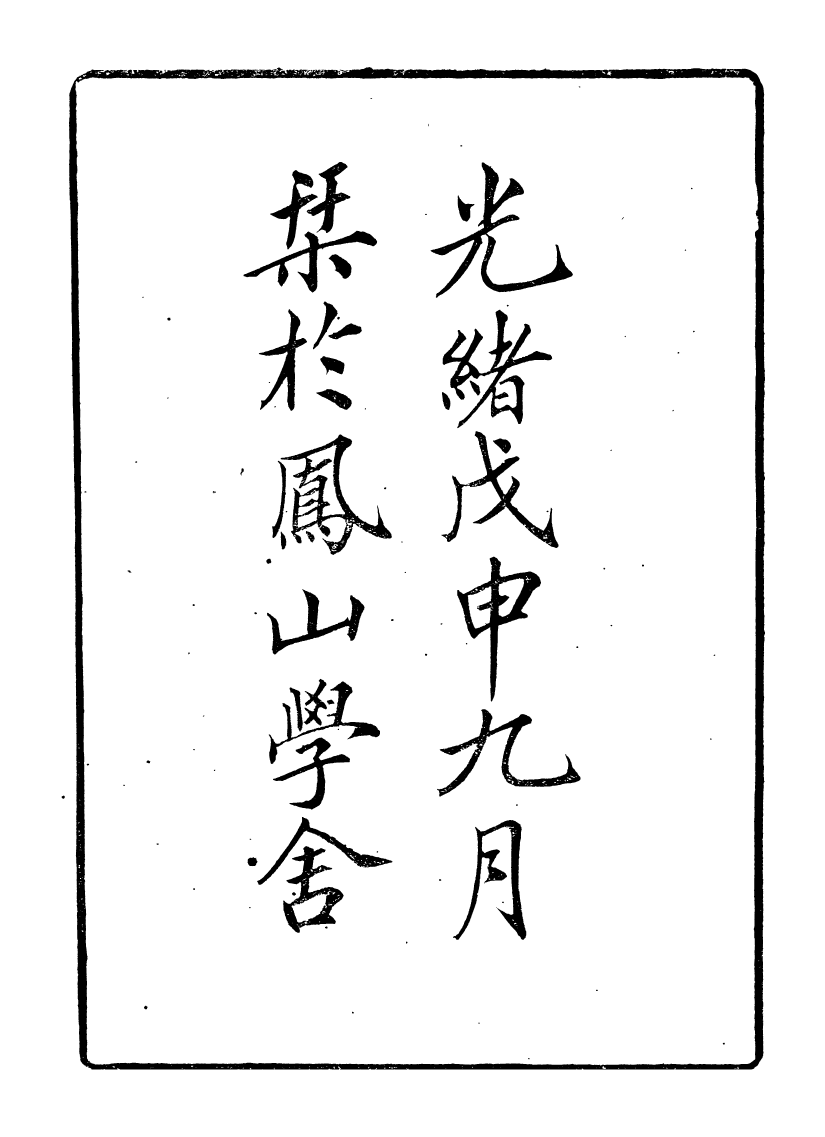 光緒戊申九月
栞於鳳山學舍